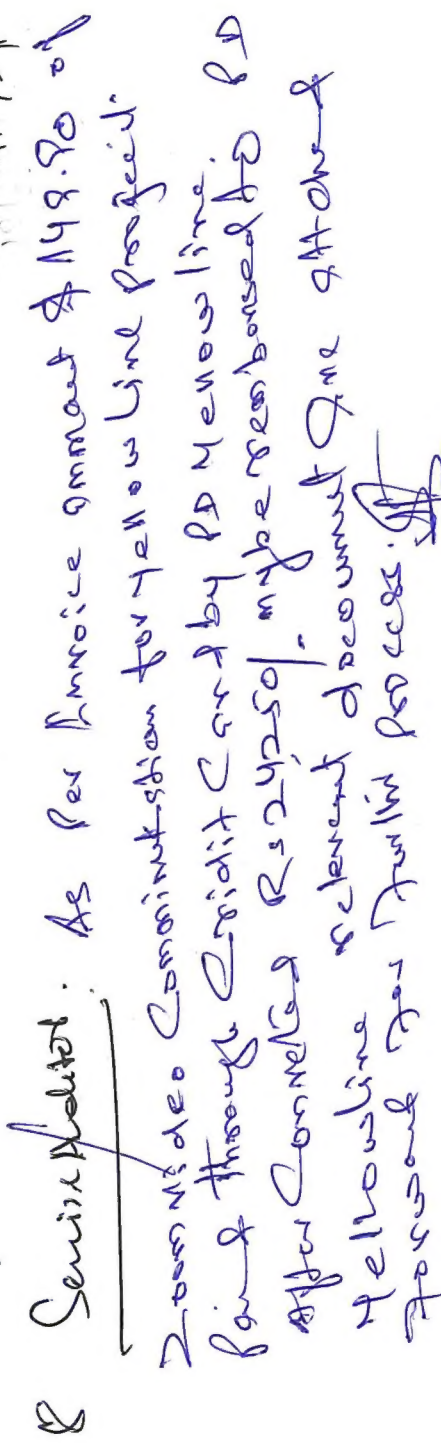 & Senior Auditor. As Per Invoice ammount $ 149.90 of
Zoom Video Comminutation for Yellow Line Project.
Paid through Cridit Card by PD Yellow line.
After Converted Rs 24250/- may be reimbonsed to PD
Yellowline relevant document are attached
Forward for Furthin Process.